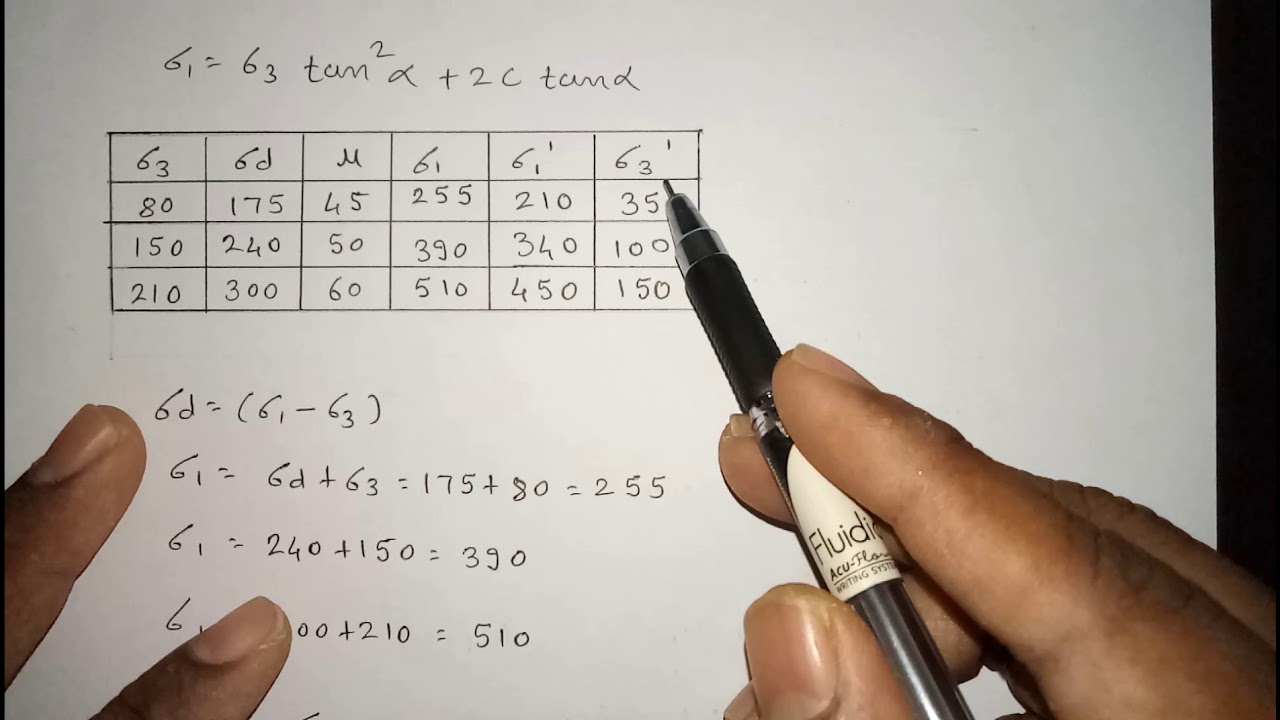 σ₁ = σ₃ tan²α + 2C tanα
σ₃ σd μ σ₁ σ₁' σ₃'
80 175 45 255 210 35
150 240 50 390 340 100
210 300 60 510 450 150
σd = (σ₁ - σ₃)
σ₁ = σd + σ₃ = 175 + 80 = 255
σ₁ = 240 + 150 = 390
σ₁ 00 + 210 = 510
Fluidic
Acu-Flow
WRITING SYSTEM